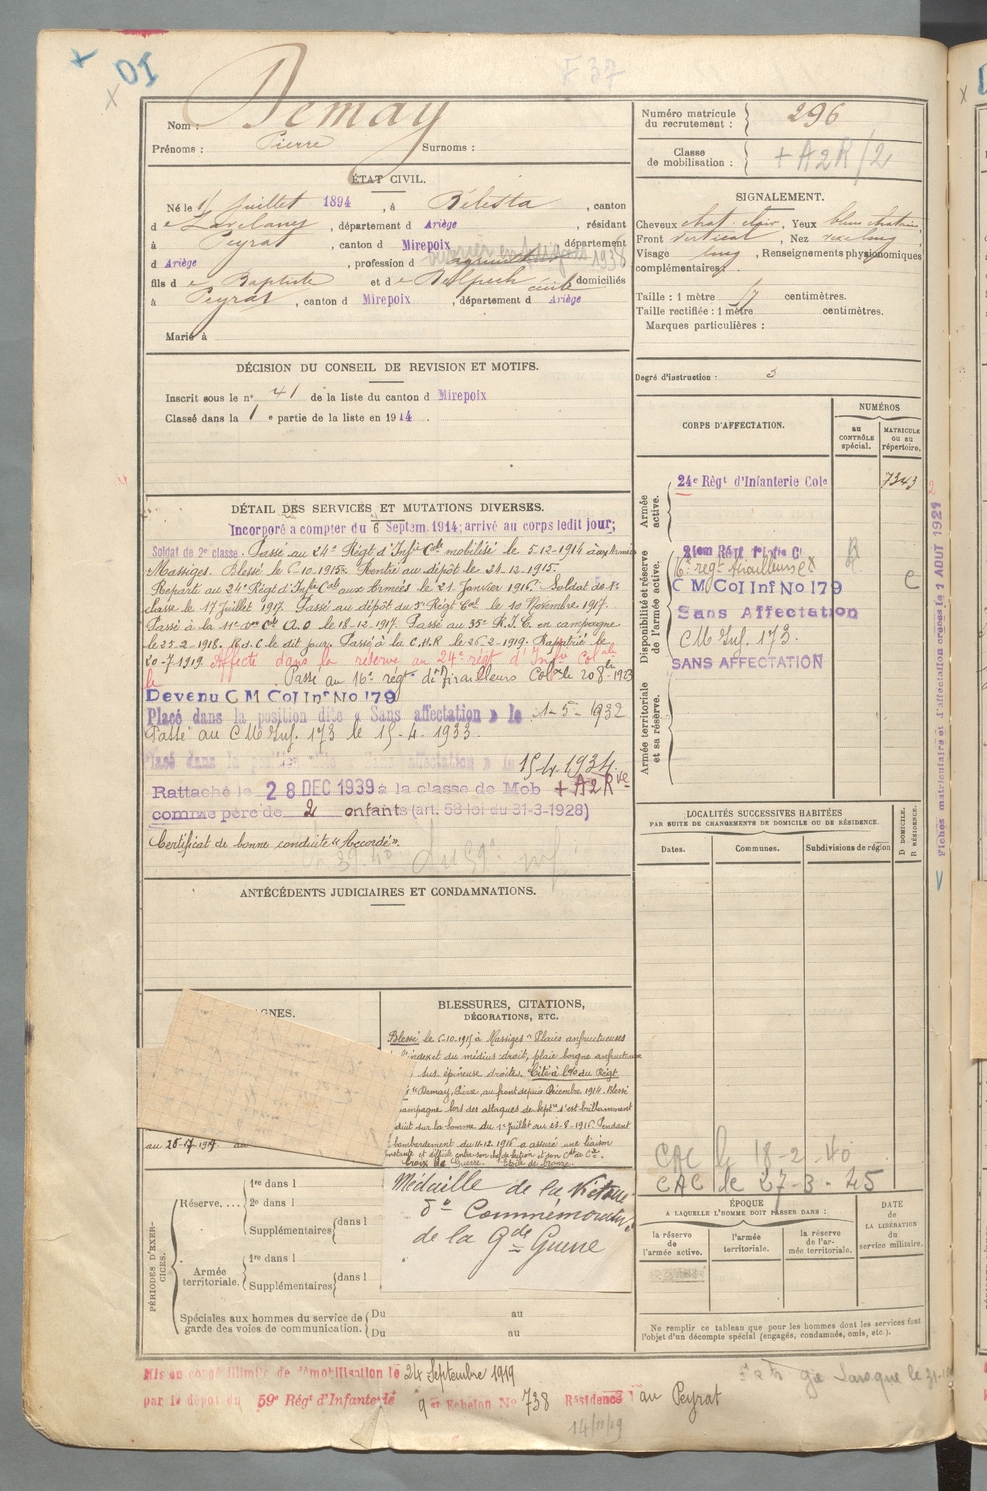 DI
F 37
Nom : Demay
Prénoms : Pierre Surnoms :
ÉTAT CIVIL.
Né le 1 juillet 1894, à Bélesta, canton
de Lavelanet, département d Ariège, résidant
à Peyrat, canton d Mirepoix département
d Ariège, profession d 1938
fils de Baptiste et de Delpech Cécile domiciliés
à Peyrat, canton d Mirepoix, département d Ariège
Marié à
DÉCISION DU CONSEIL DE REVISION ET MOTIFS.
Inscrit sous le n° 41 de la liste du canton d Mirepoix
Classé dans la 1 e partie de la liste en 1914.
DÉTAIL DES SERVICES ET MUTATIONS DIVERSES.
Incorporé a compter du 6 Septem. 1914; arrivé au corps ledit jour;
Soldat de 2e classe. Passé au 24e Régt d'Infie Cole mobilisé le 5-12-1914 aux Armées
Massiges. Blessé le 6-10-1915. Rentré au dépôt le 24-12-1915.
Reparti au 24e Régt d'Infie Cole aux Armées le 21 Janvier 1916. Soldat de 1e
classe le 17 Juillet 1917. Passé au dépôt du 5e Régt Col le 10 Novembre 1917.
Passé à la 11e A.O le 18-12-1917. Passé au 35e R.I.C. en campagne
le 25-2-1918. le dit jour. Passé à la C.H.R le 26-2-1919. Rapatrié le
20-7-1919. Affecté dans la réserve au 24e régt d'Infie Colale
le Passé au 16e régt de Tirailleurs Colx le 20-8-1923
Devenu C M Col Inf No 179
Placé dans la position dite « Sans affectation » le 1-5-1932
Passé au C M Inf. 173 le 15-4-1933.
Placé dans la position dite « Sans affectation » le 15/4/1934.
Rattaché le 28 DEC 1939 à la classe de Mob + A2R
comme père de 2 enfants (art. 58 loi du 31-3-1928)
Certificat de bonne conduite « Accordé ».
ANTÉCÉDENTS JUDICIAIRES ET CONDAMNATIONS.
GNES.
au 26-7-1919 au
BLESSURES, CITATIONS,
DÉCORATIONS, ETC.
Blessé le 6-10-1915 à Massiges Plaies anfractueuses
index et du médius droit, plaie borgne anfractueuse
sus épineuse droite. Cité à l'O du Régt
"Demay, Pierre, au front depuis Décembre 1914. Blessé
ampagne lors des attaques de Septre s'est brillamment
duit sur la Somme du 1er Juillet au 23-8-1916. Pendant
bombardement du 11-12 1916 a assuré une liaison
nstante et difficile entre son chef de section et son Ct de Cie.
Croix de Guerre. Etoile de bronze.
Médaille de la Victoire
do Commémorative
de la Gde Guerre
PÉRIODES D'EXER-
CICES.
Réserve.... 1re dans l
2e dans l
Supplémentaires dans l
Armée
territoriale. 1re dans l
Supplémentaires dans l
Spéciales aux hommes du service de
garde des voies de communication. Du au
Du au
Mis en congé illimité de démobilisation le 24 Septembre 1919
par le dépôt du 59e Régt d'Infanterie 9e Echelon No 738 Résidence au Peyrat
14/11/19
Numéro matricule
du recrutement : 296
Classe
de mobilisation : + A2R/2
SIGNALEMENT.
Cheveux chat. clair, Yeux bleu
Front vertical, Nez
Visage long, Renseignements physionomiques
complémentaires :
Taille : 1 mètre 67 centimètres.
Taille rectifiée : 1 mètre centimètres.
Marques particulières :
Degré d'instruction : 3
CORPS D'AFFECTATION.
NUMÉROS
au
CONTRÔLE
spécial.
MATRICULE
ou au
répertoire.
Armée
active.
24e Régt d'Infanterie Cole 7343
Disponibilité et réserve
de l'armée active.
16e régt tirailleurs
C M Col Inf No 179
Sans Affectation
CM Inf. 173.
SANS AFFECTATION
Armée territoriale
et sa réserve.
LOCALITÉS SUCCESSIVES HABITÉES
PAR SUITE DE CHANGEMENTS DE DOMICILE OU DE RÉSIDENCE.
Dates. Communes. Subdivisions de région
D DOMICILE.
R RÉSIDENCE.
CAC le 18-2-40
CAC le 27-3-45
ÉPOQUE
A LAQUELLE L'HOMME DOIT PASSER DANS :
la réserve
de
l'armée active.
l'armée
territoriale.
la réserve
de l'ar-
mée territoriale.
DATE
de
LA LIBÉRATION
du
service militaire.
Ne remplir ce tableau que pour les hommes dont les services font
l'objet d'un décompte spécial (engagés, condamnés, omis, etc.).
Fiches matriculaire et d'affectation créées le 4 AOUT 1921